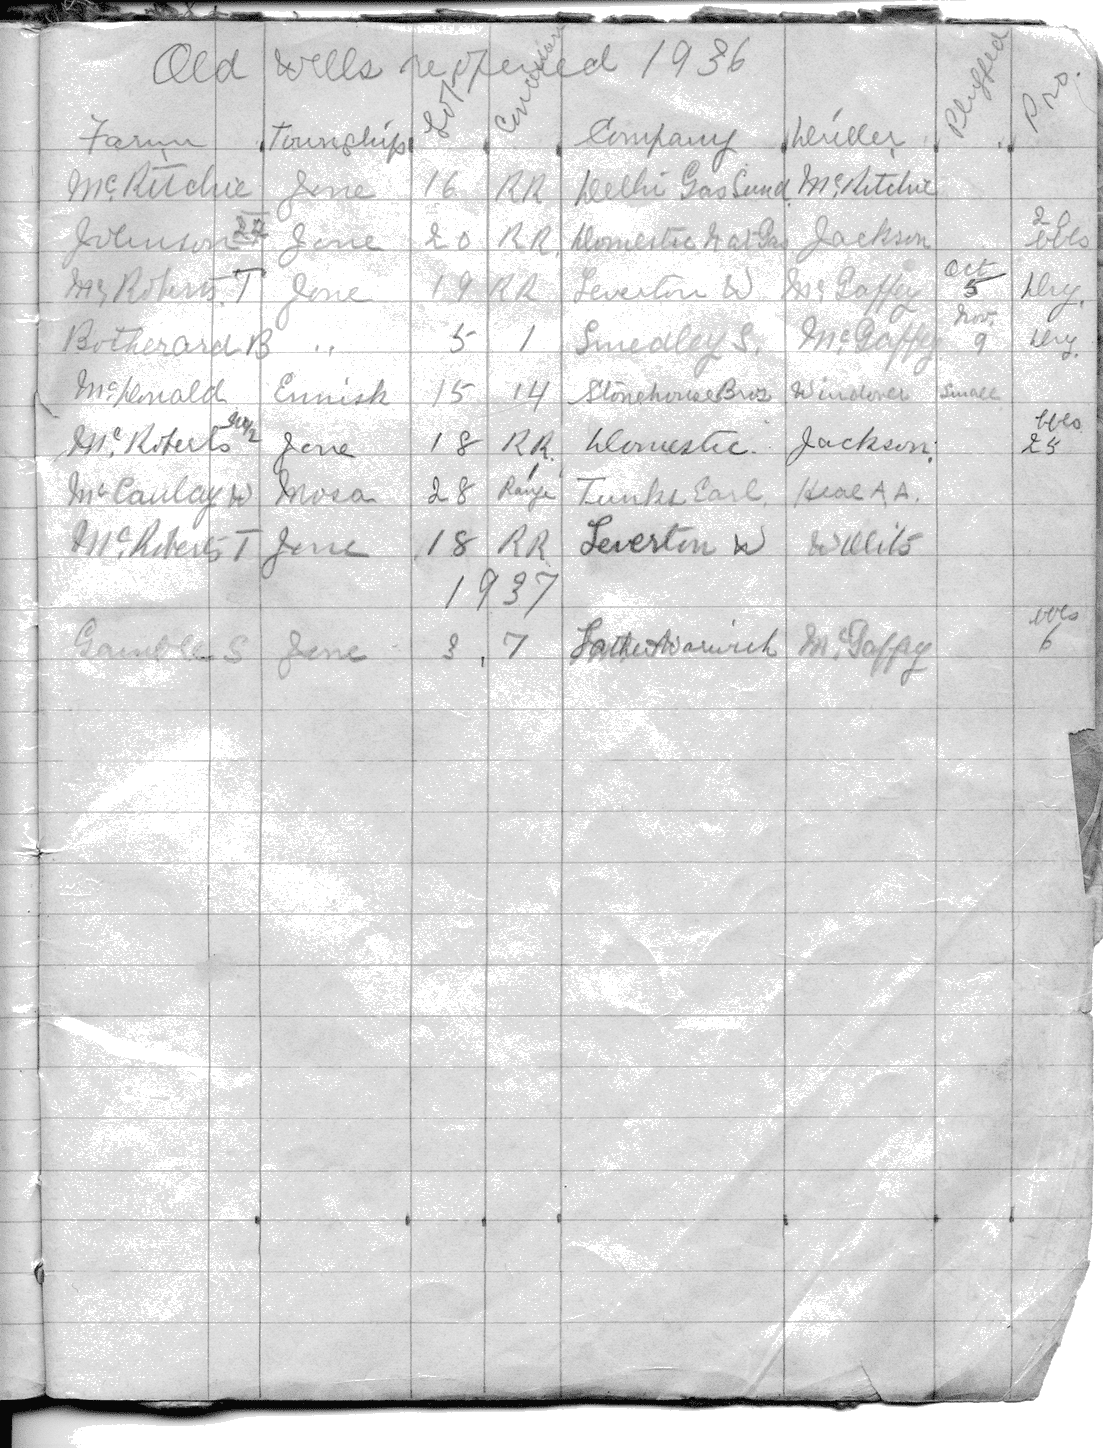 Old Wells reopened 1936
Farm Township Lot Concession Company Driller Plugged Pro.
McRitchie Zone 16 RR Delhi Gas Lund. McRitchie
Johnson Zone 20 RR. Domestic Nat Gas Jackson 2 bbls
McRoberts. T Zone 19 RR Leverton W McGaffey Oct 5 Dry.
Botherard B " 5 1 Smedley S. McGaffey Nov. 9 Dry.
McDonald Ennisk 15 14 Stonehouse Bros Windover Small
McRoberts Zone 18 RR. Domestic Jackson. bbls 25
McCaulay W Mosa 28 1 Range Tunks Earl. Heal A A.
McRoberts T Zone 18 RR Leverton W Willits
1937
Gamble S Zone 3 7 McGaffey bbls 6